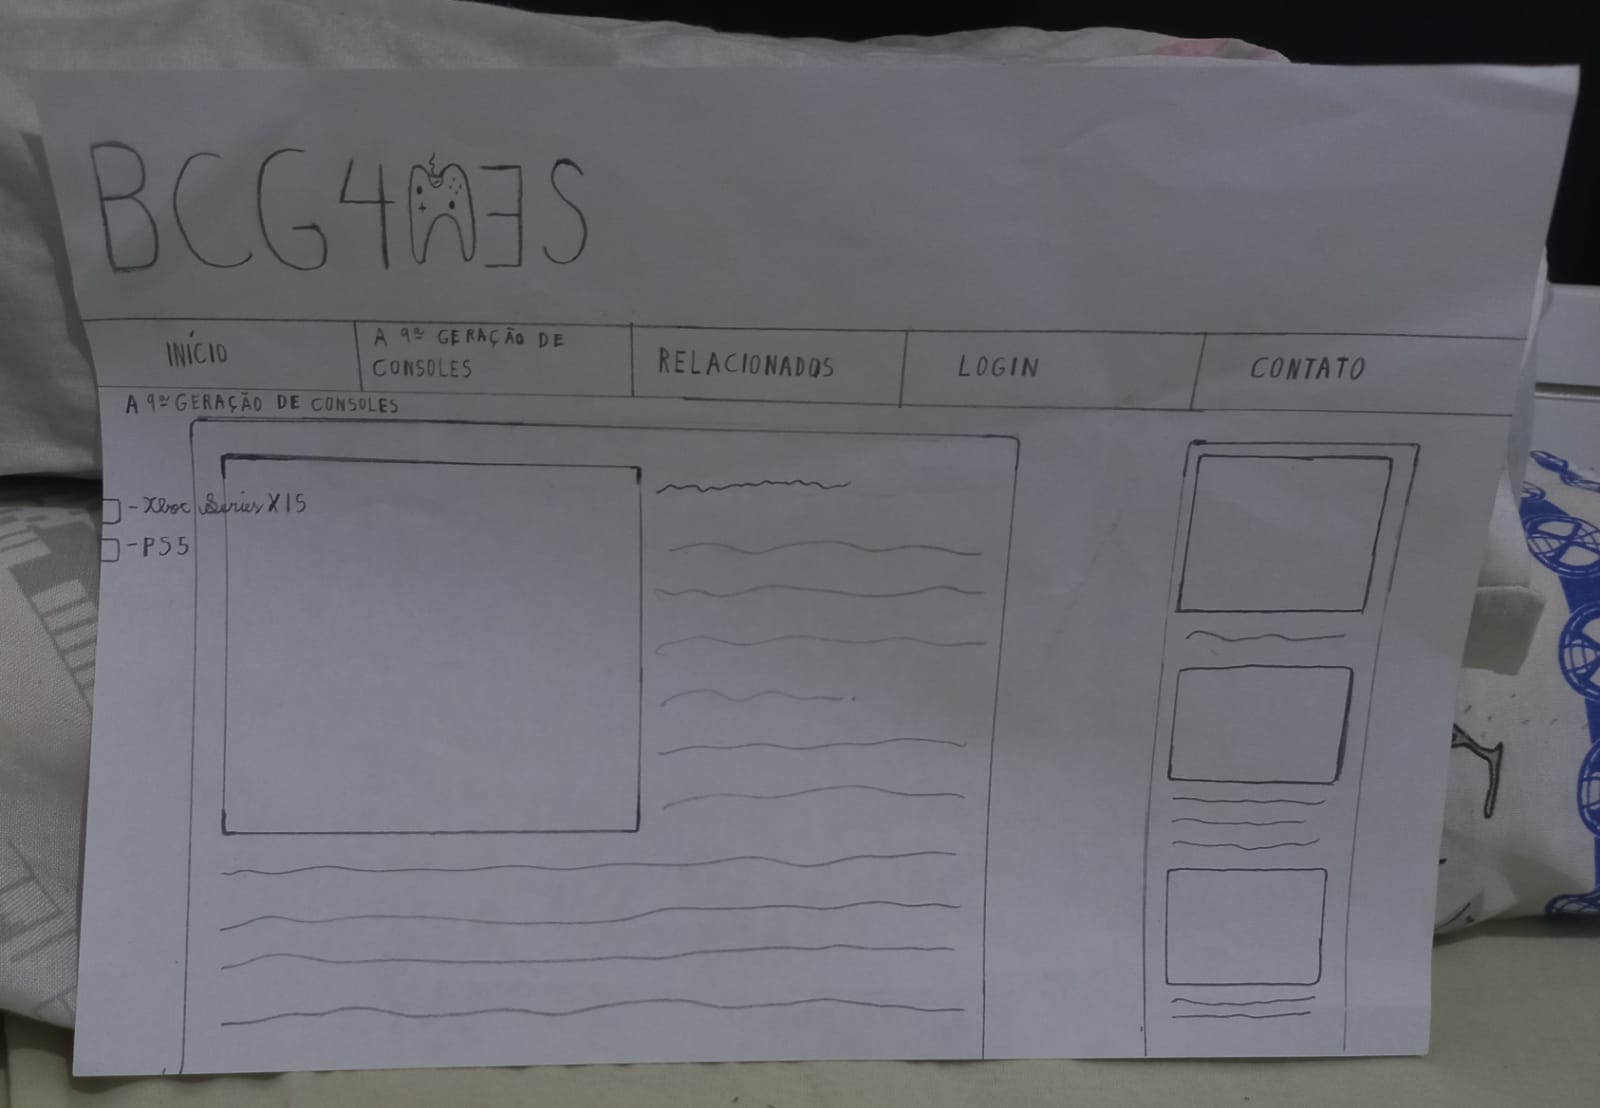 BCG4MƎS
INÍCIO
A 9ª GERAÇÃO DE
CONSOLES
RELACIONADOS
LOGIN
CONTATO
A 9ª GERAÇÃO DE CONSOLES
- Xbox Series X|S
- PS5